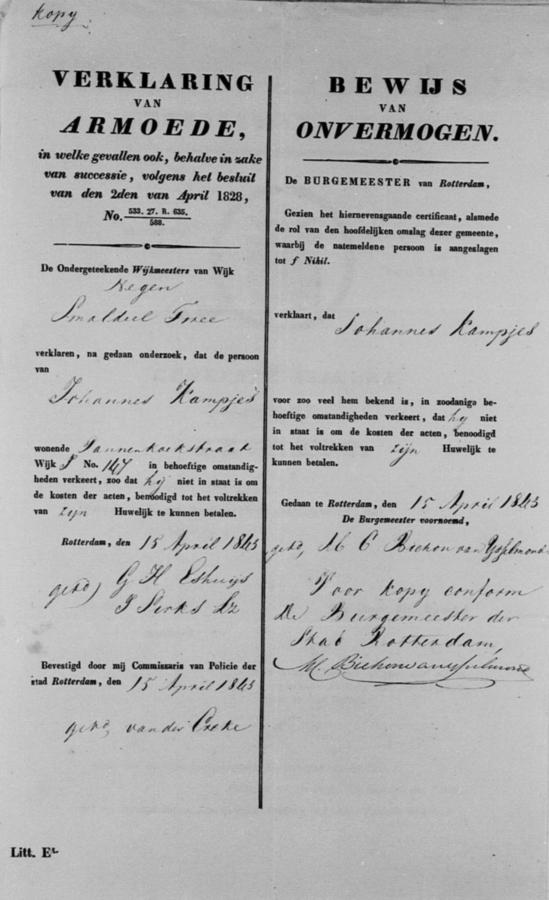 kopy
VERKLARING
VAN
ARMOEDE,
in welke gevallen ook, behalve in zake
van successie, volgens het besluit
van den 2den van April 1828,
No. 533. 27. R. 635.
588.
De Ondergeteekende Wijkmeesters van Wijk
Negen
Smaldeel Twee
verklaren, na gedaan onderzoek, dat de persoon
van
Johannes Kampjes
wonende Pannenkoekstraat
Wijk No. 147 in behoeftige omstandig-
heden verkeert, zoo dat hij niet in staat is om
de kosten der acten, benoodigd tot het voltrekken
van zijn Huwelijk te kunnen betalen.
Rotterdam, den 15 April 1843
getd, G H Eshuijs
J Serks
Bevestigd door mij Commissaris van Policie der
stad Rotterdam, den 15 April 1843
getd, van der
Litt. E
BEWIJS
VAN
ONVERMOGEN.
De BURGEMEESTER van Rotterdam,
Gezien het hiernevensgaande certificaat, alsmede
de rol van den hoofdelijken omslag dezer gemeente,
waarbij de natemeldene persoon is aangeslagen
tot f Nihil.
verklaart, dat Johannes Kampjes
voor zoo veel hem bekend is, in zoodanige be-
hoeftige omstandigheden verkeert, dat hij niet
in staat is om de kosten der acten, benoodigd
tot het voltrekken van zijn Huwelijk te
kunnen betalen.
Gedaan te Rotterdam, den 15 April 1843
De Burgemeester voornoemd,
getd, M C Bichon van IJsselmonde
Voor kopy conform
De Burgemeester der
Stad Rotterdam,
M. Bichon van IJsselmonde